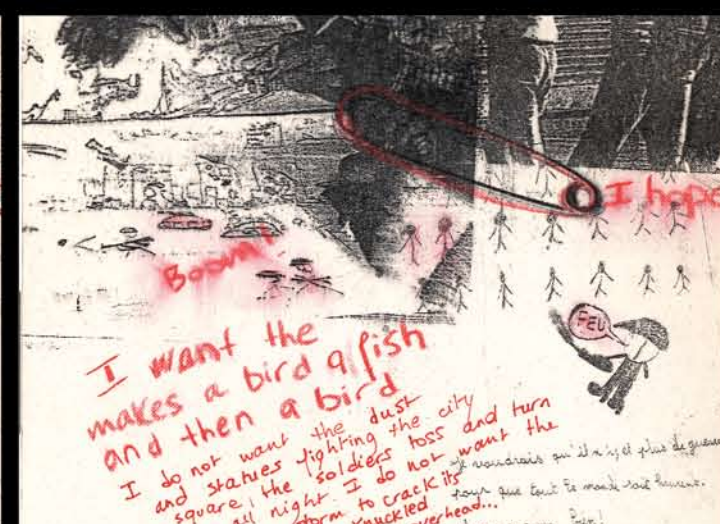 I hope
Boom!
FEU
I want the
makes a bird a fish
and then a bird
I do not want the dust
and statues fighting the city
square, the soldiers toss and turn
all night. I do not want the
storm to crack its
knuckled
overhead...
Je voudrais qu'il n'y ait plus de guerre
pour que tout le monde soit heureux.